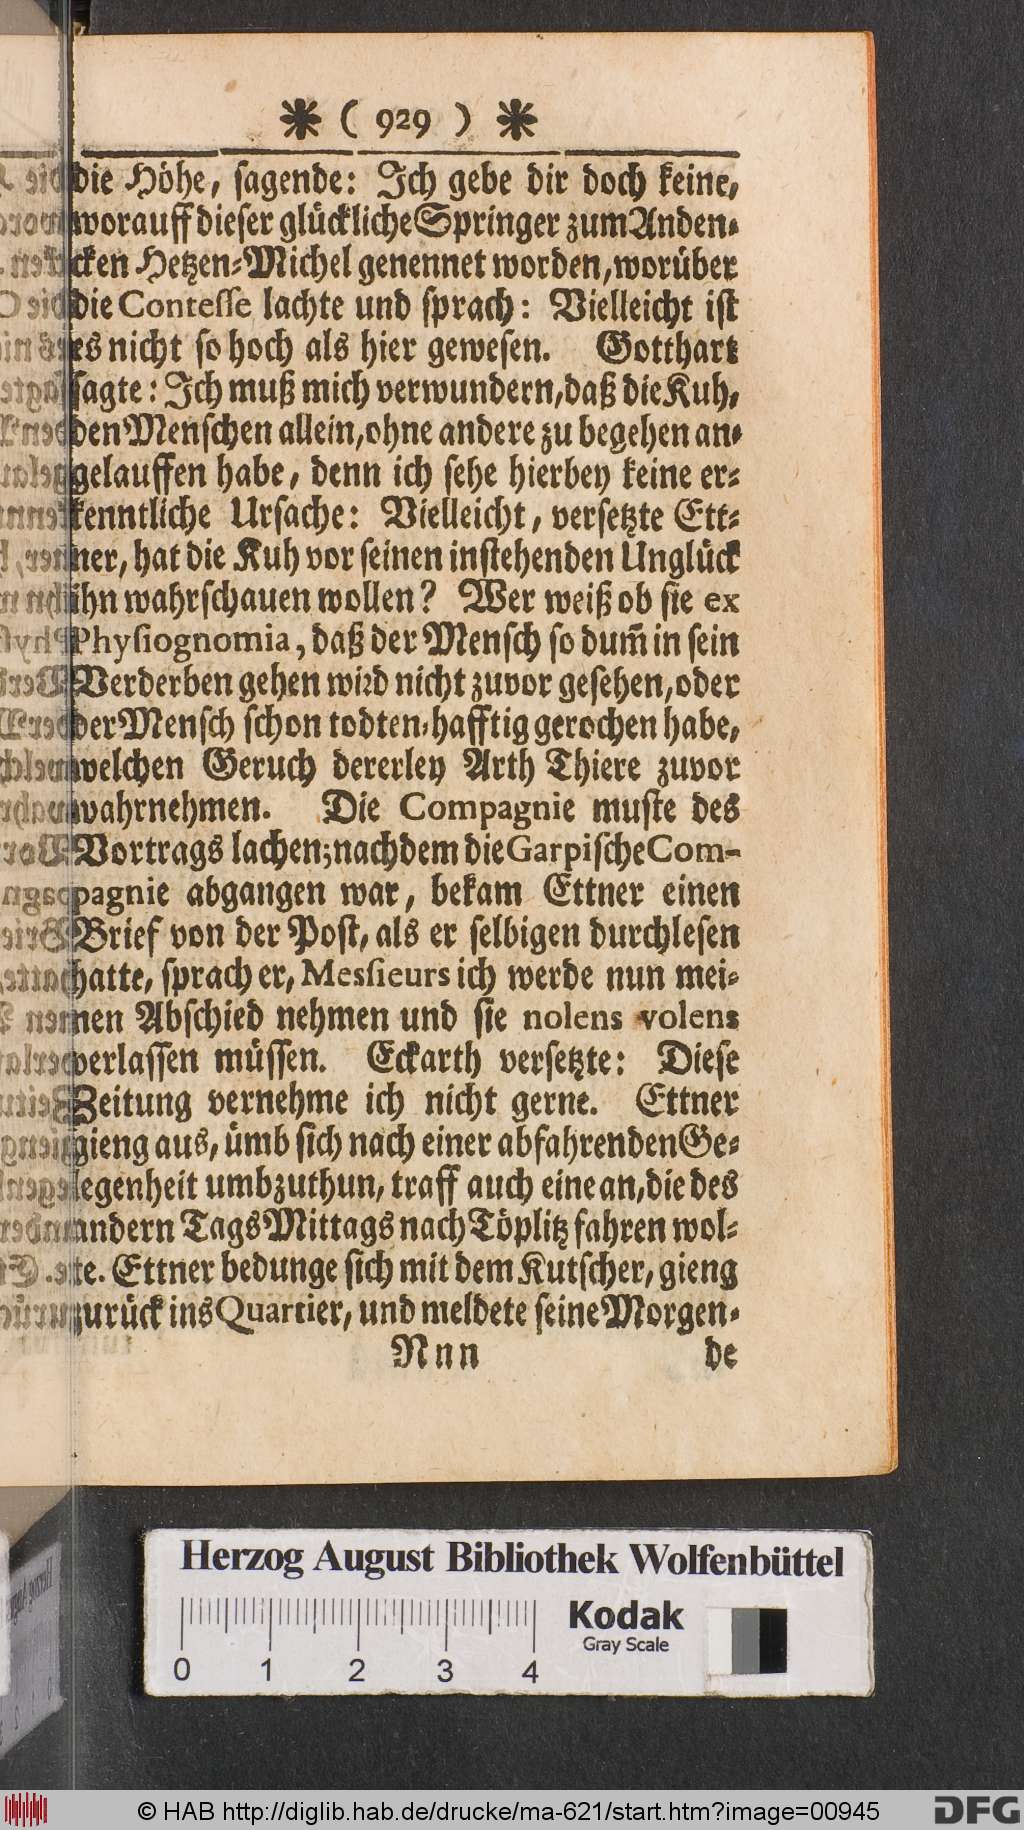 ❋ ( 929 ) ❋
die Höhe, sagende: Ich gebe dir doch keine,
worauff dieser glückliche Springer zum Anden-
cken Hetzen-Michel genennet worden, worüber
die Contesse lachte und sprach: Vielleicht ist
es nicht so hoch als hier gewesen. Gotthart
sagte: Ich muß mich verwundern, daß die Kuh,
den Menschen allein, ohne andere zu begehen an-
gelauffen habe, denn ich sehe hierbey keine er-
kenntliche Ursache: Vielleicht, versetzte Ett-
ner, hat die Kuh vor seinen instehenden Unglück
ihn wahrschauen wollen? Wer weiß ob sie ex
Physiognomia, daß der Mensch so dum̃ in sein
Verderben gehen wird nicht zuvor gesehen, oder
der Mensch schon todten-hafftig gerochen habe,
welchen Geruch dererley Arth Thiere zuvor
wahrnehmen. Die Compagnie muste des
Vortrags lachen; nachdem die Garpische Com-
pagnie abgangen war, bekam Ettner einen
Brief von der Post, als er selbigen durchlesen
hatte, sprach er, Messieurs ich werde nun mei-
nen Abschied nehmen und sie nolens volens
verlassen müssen. Eckarth versetzte: Diese
Zeitung vernehme ich nicht gerne. Ettner
gieng aus, ümb sich nach einer abfahrenden Ge-
legenheit umbzuthun, traff auch eine an, die des
andern Tags Mittags nach Töplitz fahren wol-
te. Ettner bedunge sich mit dem Kutscher, gieng
zurück ins Quartier, und meldete seine Morgen-
Nnn de
Herzog August Bibliothek Wolfenbüttel
Kodak
Gray Scale
0 1 2 3 4
© HAB http://diglib.hab.de/drucke/ma-621/start.htm?image=00945
DFG